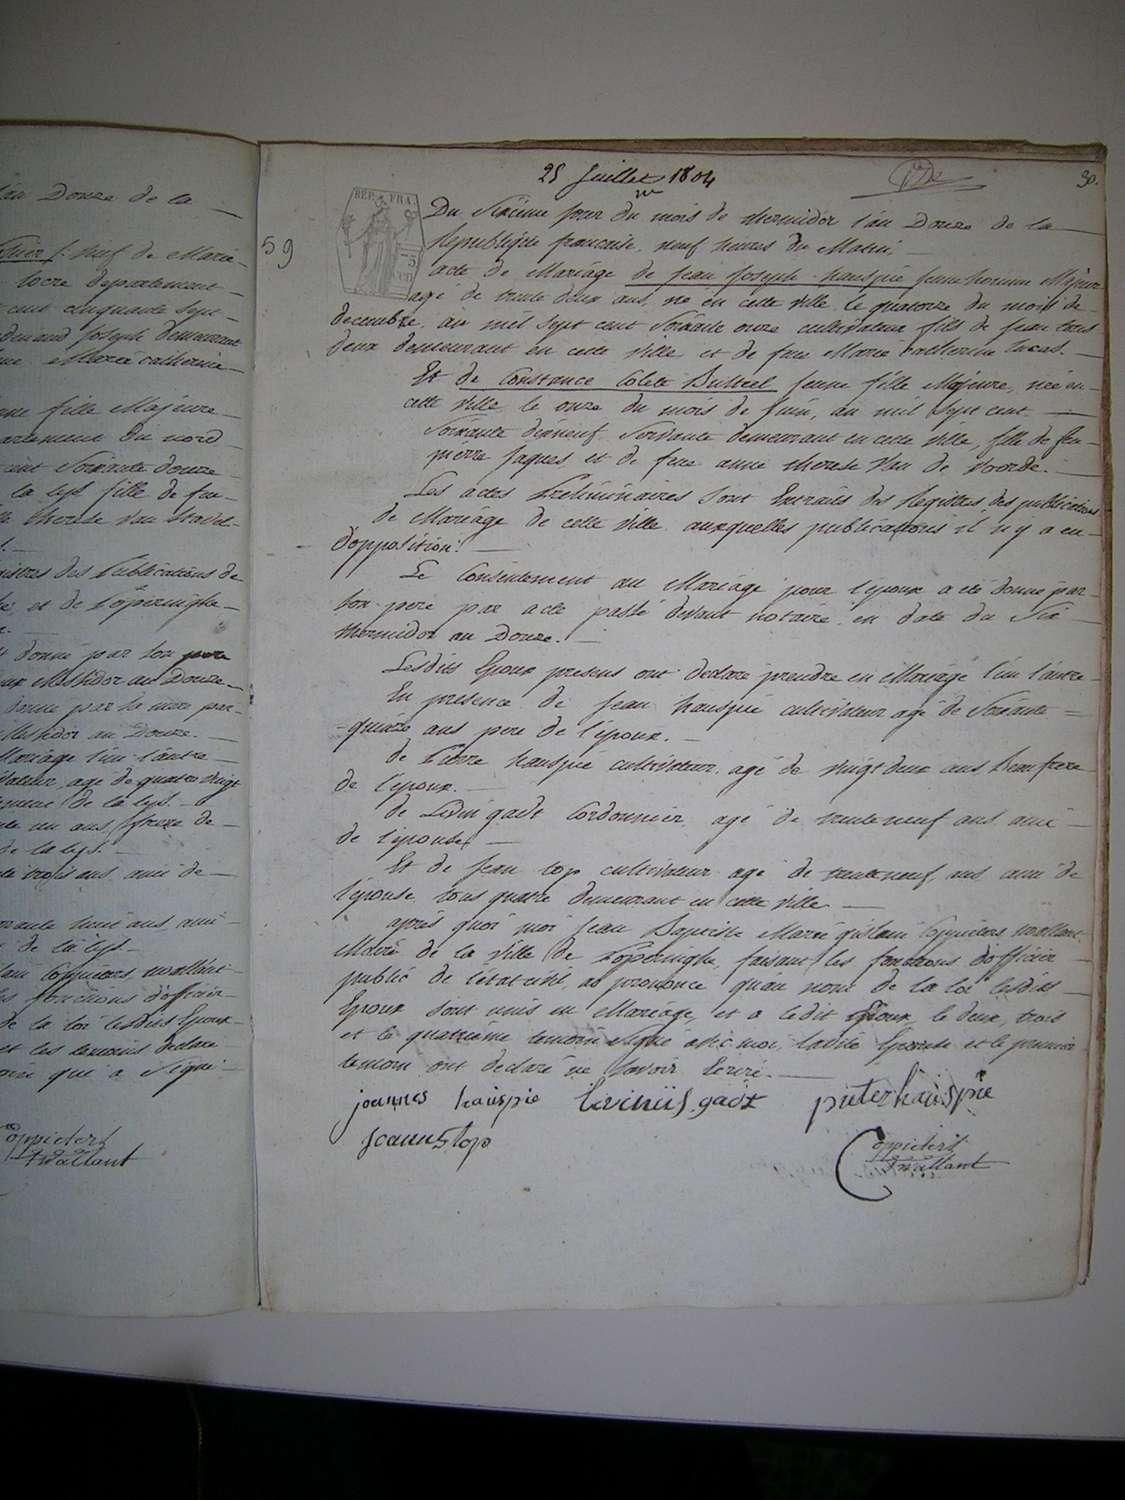 lin Douze de la
thier /: Neuf de Marie
locre departement
cent cinquante sept
Joseph demeurant
Marie catherine
fille Majeure
du nord
cent Soixante douze
la lys fille de feu
therese Van
des Publications de
et de Poperinghe
donné par son pere
Messidor an Douze
donné par la mere par
Messidor an Douze.
Mariage l'un l'autre
agé de quatre vingt
de la lys.
un ans, frere de
de la lys.
trois ans ami de
huit ans ami
de la lys
Coppieters wallant
fonctions d'officier
de la loi lesdits Epoux
et les temoins declaré
qui a signé
Coppieters
twallant
25 Juillet 1804
30.
REP. FRA.
59
Du Sixieme jour du mois de thermidor l'an Douze de la
Republique francaise, neuf heures du Matin,
acte de Mariage de Jean Joseph hauspie jeune homme Majeur
agé de trente deux ans, né en cette ville le quatorze du mois de
decembre, an mil sept cent Soixante onze cultivateur fils de Jean tous
deux demeurant en cette ville et de feue Marie Catherine Lucas.
Et de Constance Colette Butteel jeune fille Majeure, née en
cette ville le onze du mois de Juin, an mil sept cent
Soixante dixneuf Servante demeurant en cette ville, fille de feu
pierre Jaques et de feue anne therese Van de Voorde.
Les actes Preliminaires sont Extraits des Registres des publications
de Mariage de cette ville auxquelles publications il n'y a eu
d'opposition.
Le Consentement au Mariage pour l'epoux a été donné par
son pere par acte passé devant notaire en date du Six
thermidor an Douze.
Lesdits Epoux presens ont declaré prendre en Mariage l'un l'autre
En presence de Jean hauspie cultivateur agé de Soixante =
quinze ans pere de l'epoux.
de Pierre hauspie cultivateur, agé de vingt deux ans beau frere
de l'epoux.
de Livin gadt Cordonnier agé de trente neuf ans ami
de l'epouse
Et de Jean top cultivateur agé de trente neuf ans ami de
l'epouse, tous quatre demeurant en cette ville
après quoi moi Jean Baptiste Marie gislain Coppieters twallant
Maire de la ville de Poperinghe, faisant les fonctions d'officier
public de l'état civil, ai prononcé qu'au nom de la loi lesdits
Epoux sont unis en Mariage, et a ledit Epoux, le deux, trois
et le quatrieme temoin signé avec moi, ladite Epouse et le premier
temoin ont declaré ne savoir Ecrire.
joannes hauspie Livinus gadt pieter hauspie
joannes top
Coppieters
twallant